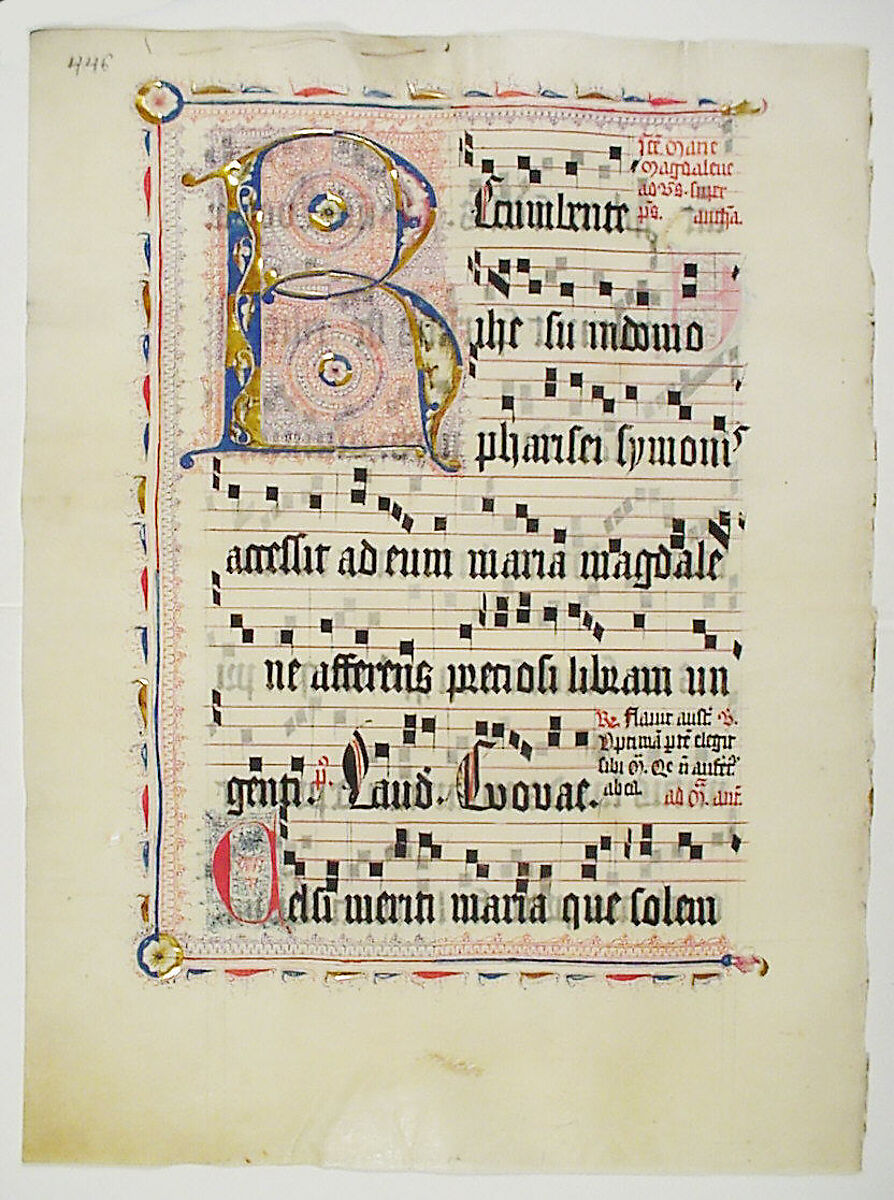 446
Recumbente
Sce Marie
Magdalene
ad vs. super
ps. antha.
phe su in domo
pharisei symonis
accessit ad eum maria magdale
ne afferens preciosi libram un
genti. p. Laud. Evovae.
R. flavit aust v.
Optima pte elegit
sibi M. Qe n aufet
ab ea. ad M. ant.
Celsi meriti maria que solem